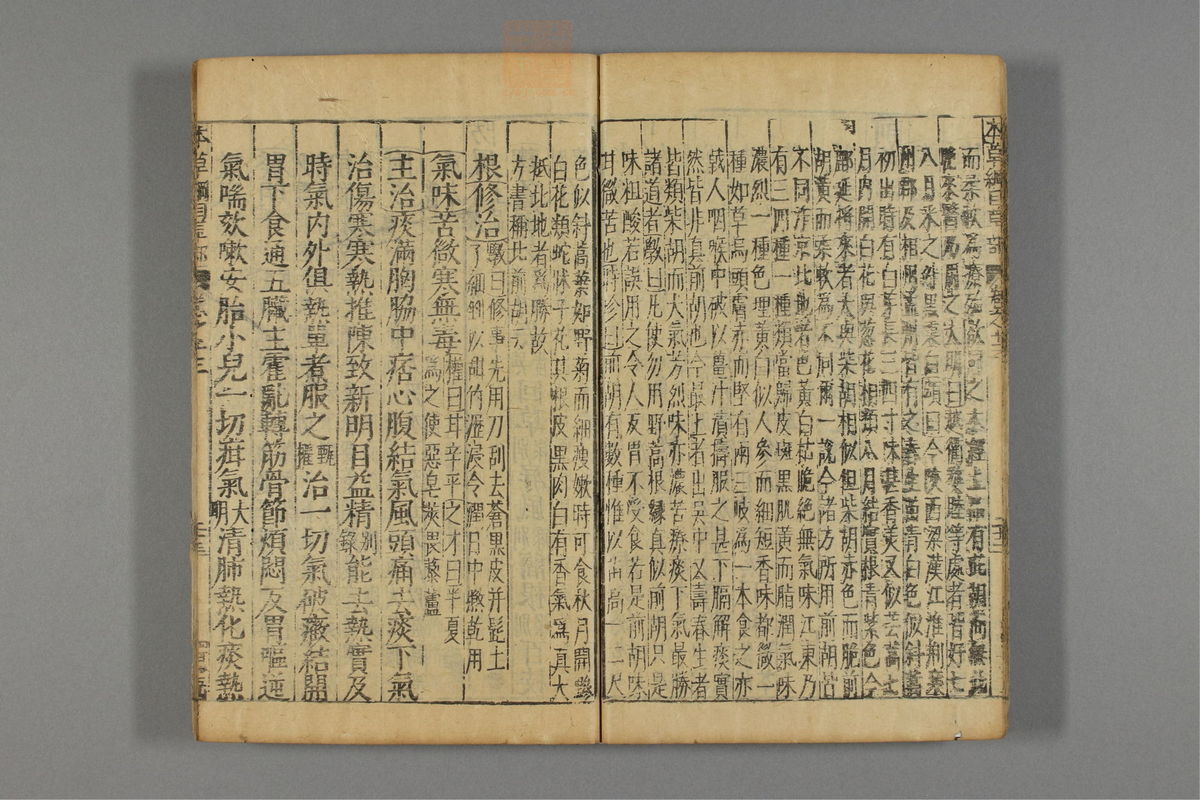 本草綱目草部
而柔軟為療殆欲同之本經上品有茈胡而無此
晚來醫乃用之大明曰越衢婺睦等處者皆好七
八月采之外黑裏白頌曰今陝西梁漢江淮荊襄
州郡及相州孟州皆有之春生苗青白色似斜蒿
初出時有白芽長三四寸味甚香美又似芸蒿七
月內開白花與葱花相類八月結實根青紫色今
鄜延將來者大與柴胡相似但柴胡赤色而脆前
胡黃而柔軟為不同爾一說今諸方所用前胡皆
不同汴京北地者色黃白枯脆絕無氣味江東乃
有三四種一種類當歸皮斑黑肌黃而脂潤氣味
濃烈一種色理黃白似人參而細短香味都微一
種如草烏頭膚赤而堅有兩三岐為一本食之亦
戟人咽喉中破以薑汁漬擣服之甚下膈解痰實
然皆非真前胡也今最上者出吳中又壽春生者
皆類柴胡而大氣芳烈味亦濃苦療痰下氣最勝
諸道者斅曰凡使勿用野蒿根緣真似前胡只是
味粗酸若誤用之令人反胃不受食若是前胡味
甘微苦也時珍曰前胡有數種惟以苗高一二尺
色似斜蒿葉如野菊而細瘦嫩時可食秋月開黲
白花類蛇牀子花其根皮黑肉白有香氣爲真大
抵北地者爲勝故
方書稱北前胡云
根修治斅曰修事先用刀刮去蒼黑皮并髭土
了細剉以甜竹瀝浸令潤日中㬠乾用
氣味苦微寒無毒權曰甘辛平之才曰半夏
爲之使惡皂莢畏藜蘆
主治痰滿胸脇中痞心腹結氣風頭痛去痰下氣
治傷寒寒熱推陳致新明目益精別錄能去熱實及
時氣內外俱熱單煮服之甄權治一切氣破癥結開
胃下食通五臟主霍亂轉筋骨節煩悶反胃嘔逆
氣喘欬嗽安胎小兒一切疳氣大明清肺熱化痰熱
本草綱目草部